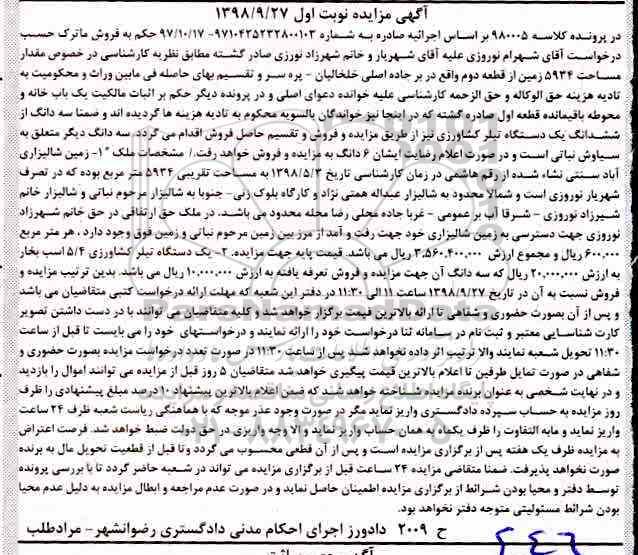 آگهی مزایده نوبت اول ۱۳۹۸/۹/۲۷
در پرونده کلاسه ۹۸۰۰۰۵ بر اساس اجرائیه صادره به شماره ۹۷۱۰۴۲۵۲۳۲۸۰۰۱۰۳-۹۷/۱۰/۱۷ حکم به فروش ماترک حسب
درخواست آقای شهرام نوروزی علیه آقای شهریار و خانم شهرزاد نورزی صادر گشته مطابق نظریه کارشناسی در خصوص مقدار
مساحت ۵۹۳۴ زمین از قطعه دوم واقع در بر جاده اصلی خلخالیان - پره سر و تقسیم بهای حاصله فی مابین وراث و محکومیت به
تادیه هزینه حق الوکاله و حق الزحمه کارشناسی علیه خوانده دعوای اصلی و در پرونده دیگر حکم بر اثبات مالکیت یک باب خانه و
محوطه باقیمانده قطعه اول صادره گشته که در اینجا نیز خواندگان بالسویه محکوم به تادیه هزینه ها گردیده اند و ضمنا سه دانگ از
ششدانگ یک دستگاه تیلر کشاورزی نیز از طریق مزایده و فروش و تقسیم حاصل فروش اقدام می گردد. سه دانگ دیگر متعلق به
سیاوش نباتی است و در صورت اعلام رضایت ایشان ۶ دانگ به مزایده و فروش خواهد رفت./ مشخصات ملک "۱- زمین شالیزاری
آباد سنتی نشاء شده از رقم هاشمی در زمان کارشناسی تاریخ ۱۳۹۸/۵/۳ به مساحت تقریبی ۵۹۳۴ متر مربع بوده که در تصرف
شهریار نوروزی است و شمالا محدود به شالیزار عبداله همتی نژاد و کارگاه بلوک زنی- جنوبا به شالیزار مرحوم نباتی و شالیزار خانم
شیرزاد نوروزی - شرقا آب بر عمومی - غربا جاده محلی رضا محله محدود می باشد. در ملک حق ارتفاقی در حق خانم شهرزاد
نوروزی جهت دسترسی به زمین شالیزاری خود جهت رفت و آمد از مرز بین زمین مرحوم نباتی و زمین فوق وجود دارد ، هر متر مربع
۶۰۰,۰۰۰ ریال و مجموع ارزش ۳,۵۶۰,۴۰۰,۰۰۰ ریال می باشد. قیمت پایه جهت مزایده. ۲- یک دستگاه تیلر کشاورزی ۵/۴ اسب بخار
به ارزش ۲۰,۰۰۰,۰۰۰ ریال که سه دانگ آن جهت مزایده و فروش تعرفه یافته به ارزش ۱۰,۰۰۰,۰۰۰ ریال می باشد. بدین ترتیب مزایده و
فروش نسبت به آن در تاریخ ۱۳۹۸/۹/۲۷ ساعت ۱۱ الی ۱۱:۳۰ در دفتر این شعبه که مهلت ارائه درخواست کتبی متقاضیان می باشد
و پس از آن بصورت حضوری و شفاهی تا ارائه بالاترین قیمت برگزار خواهد شد و کلیه متقاضیان می توانند با در دست داشتن تصویر
کارت شناسایی معتبر و ثبت نام در سامانه ثنا درخواست خود را ارائه نمایند و درخواستهای خود را می بایست تا قبل از ساعت
۱۱:۳۰ تحویل شعبه نمایند والا ترتیب اثر داده نخواهد شد. پس از ساعت ۱۱:۳۰ در صورت تعدد درخواست مزایده بصورت حضوری و
شفاهی در صورت تمایل طرفین تا اعلام بالاترین قیمت پیگیری خواهد شد متقاضیان ۵ روز قبل از مزایده می توانند اموال را بازدید
و در نهایت شخصی به عنوان برنده مزایده شناخته خواهد شد که ضمن اعلام بالاترین پیشنهاد ۱۰ درصد مبلغ پیشنهادی را ظرف
روز مزایده به حساب سپرده دادگستری واریز نماید مگر در صورت وجود عذر موجه که با هماهنگی ریاست شعبه ظرف ۲۴ ساعت
واریز نماید و مابه التفاوت را ظرف یکماه به همان حساب واریز نماید و الا وجه واریزی در حق دولت ضبط خواهد شد. فرصت اعتراض
به مزایده ظرف یک هفته پس از برگزاری مزایده است و پس از آن قطعی محسوب می گردد وتا قبل از قطعیت تحویل مال به برنده
صورت نخواهد پذیرفت. ضمنا متقاضی مزایده ۲۴ ساعت قبل از برگزاری مزایده می تواند در شعبه حاضر گردد تا با بررسی پرونده
توسط دفتر و محیا بودن شرائط از برگزاری مزایده اطمینان حاصل نماید و در صورت عدم مراجعه و ابطال مزایده به دلیل عدم محیا
بودن شرائط مسئولیتی متوجه دفتر نخواهد بود.
ح ۲۰۰۹ دادورز اجرای احکام مدنی دادگستری رضوانشهر- مرادطلب